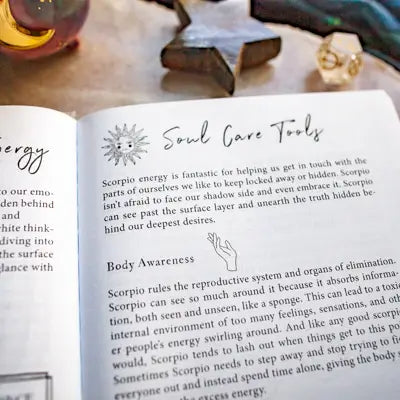 ergy
to our emo-
den behind
and
hite think-
diving into
the surface
glance with
Soul Care Tools
Scorpio energy is fantastic for helping us get in touch with the
parts of ourselves we like to keep locked away or hidden. Scorpio
isn't afraid to face our shadow side and even embrace it. Scorpio
can see past the surface layer and unearth the truth hidden be-
hind our deepest desires.
Body Awareness
Scorpio rules the reproductive system and organs of elimination.
Scorpio can see so much around it because it absorbs informa-
tion, both seen and unseen, like a sponge. This can lead to a toxic
internal environment of too many feelings, sensations, and oth-
er people's energy swirling around. And like any good scorpi
would, Scorpio tends to lash out when things get to this po
Sometimes Scorpio needs to step away and stop trying to fi
everyone out and instead spend time alone, giving the body s
the excess energy.